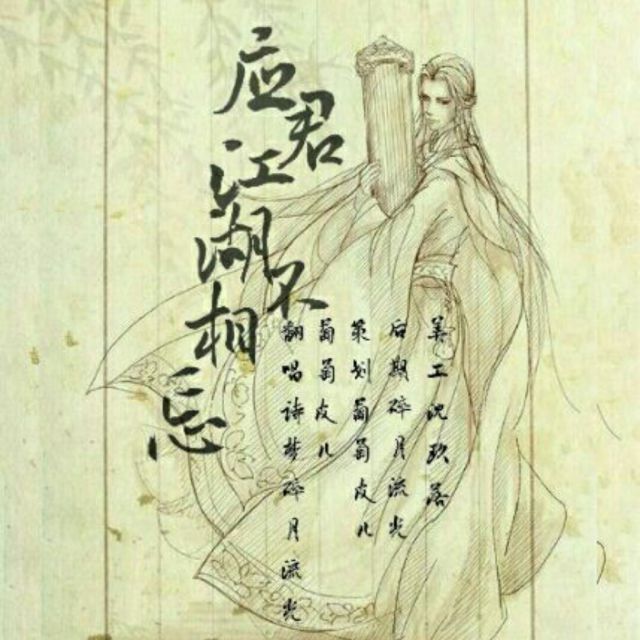 应君江湖不相忘
美工沈玖
后期碎月流光
策划萄萄皮儿
萄萄皮儿
翻唱诗梦碎月流光